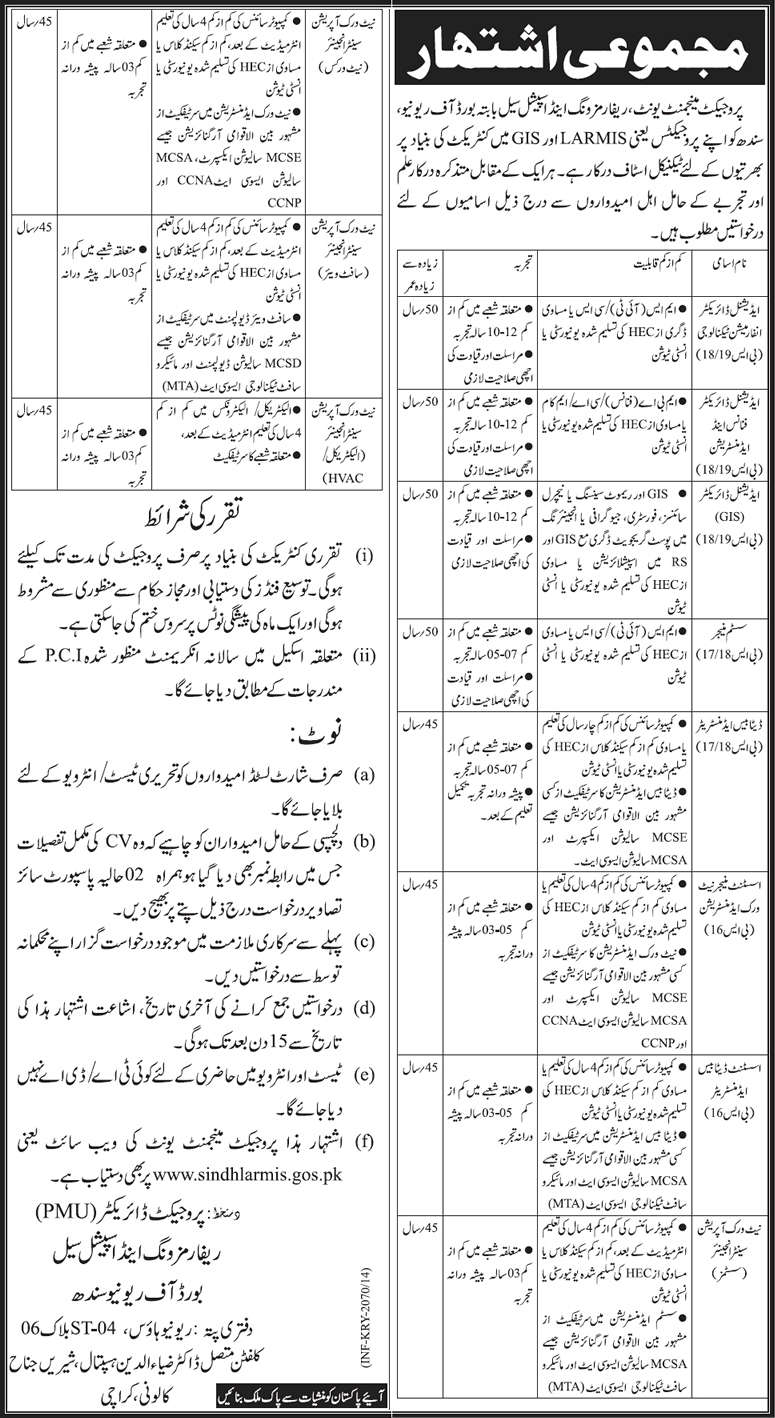 مجموعی اشتہار
پروجیکٹ مینجمنٹ یونٹ، ریفارمز ونگ اینڈ اسپیشل سیل بابتہ بورڈ آف ریونیو،
سندھ کو اپنے پروجیکٹس یعنی LARMIS اور GIS میں کنٹریکٹ کی بنیاد پر
بھرتیوں کے لئے ٹیکنیکل اسٹاف درکار ہے۔ ہر ایک کے مقابل متذکرہ درکار علم
اور تجربے کے حامل اہل امیدواروں سے درج ذیل اسامیوں کے لئے
درخواستیں مطلوب ہیں۔
نام اسامی
کم از کم قابلیت
تجربہ
زیادہ سے
زیادہ عمر
ایڈیشنل ڈائریکٹر
انفارمیشن ٹیکنالوجی
(بی ایس 18/19)
● ایم ایس (آئی ٹی)/سی ایس یا مساوی
ڈگری از HEC کی تسلیم شدہ یونیورسٹی یا
انسٹی ٹیوشن
● متعلقہ شعبے میں کم از
کم 12-10 سالہ تجربہ
● مراسلت اور قیادت کی
اچھی صلاحیت لازمی
50؍سال
ایڈیشنل ڈائریکٹر
فنانس اینڈ
ایڈمنسٹریشن
(بی ایس 18/19)
● ایم بی اے (فنانس)/سی اے/ایم کام
یا مساوی از HEC کی تسلیم شدہ یونیورسٹی یا
انسٹی ٹیوشن
● متعلقہ شعبے میں کم از
کم 12-10 سالہ تجربہ
● مراسلت اور قیادت کی
اچھی صلاحیت لازمی
50؍سال
ایڈیشنل ڈائریکٹر
(GIS)
(بی ایس 18/19)
● GIS اور ریموٹ سینسنگ یا نیچرل
سائنسز، فورسٹری، جیوگرافی یا انجینئرنگ
میں پوسٹ گریجویٹ ڈگری مع GIS اور
RS میں اسپیشلائزیشن یا مساوی
از HEC کی تسلیم شدہ یونیورسٹی یا انسٹی
ٹیوشن
● متعلقہ شعبے میں کم از
کم 12-10 سالہ تجربہ
● مراسلت اور قیادت
کی اچھی صلاحیت لازمی
50؍سال
سسٹم منیجر
(بی ایس 17/18)
● ایم ایس (آئی ٹی)/سی ایس یا مساوی
از HEC کی تسلیم شدہ یونیورسٹی یا انسٹی
ٹیوشن
● متعلقہ شعبے میں کم از
کم 07-05 سالہ تجربہ
● مراسلت اور قیادت
کی اچھی صلاحیت لازمی
50؍سال
ڈیٹا بیس ایڈمنسٹریٹر
(بی ایس 17/18)
● کمپیوٹر سائنس کی کم از کم چار سال کی تعلیم
یا مساوی کم از کم سیکنڈ کلاس از HEC کی
تسلیم شدہ یونیورسٹی یا انسٹی ٹیوشن
● ڈیٹا بیس ایڈمنسٹریشن کا سرٹیفکیٹ از کسی
مشہور بین الاقوامی آرگنائزیشن جیسے
MCSE سالیوشن ایکسپرٹ اور
MCSA سالیوشن ایسوسی ایٹ۔
● متعلقہ شعبے میں کم از
کم 07-05 سالہ تجربہ
● پیشہ ورانہ تجربہ تکمیل
تعلیم کے بعد۔
45؍سال
اسسٹنٹ منیجر نیٹ
ورک ایڈمنسٹریشن
(بی ایس 16)
● کمپیوٹر سائنس کی کم از کم 4 سال کی تعلیم یا
مساوی کم از کم سیکنڈ کلاس از HEC کی
تسلیم شدہ یونیورسٹی یا انسٹی ٹیوشن
● نیٹ ورک ایڈمنسٹریشن کا سرٹیفکیٹ از
کسی مشہور بین الاقوامی آرگنائزیشن جیسے
MCSE سالیوشن ایکسپرٹ اور
MCSA سالیوشن ایسوسی ایٹ CCNA
اور CCNP
● متعلقہ شعبے میں کم از
کم 05-03 سالہ پیشہ
ورانہ تجربہ
45؍سال
اسسٹنٹ ڈیٹا بیس
ایڈمنسٹریٹر
(بی ایس 16)
● کمپیوٹر سائنس کی کم از کم 4 سال کی تعلیم یا
مساوی کم از کم سیکنڈ کلاس از HEC کی
تسلیم شدہ یونیورسٹی یا انسٹی ٹیوشن
● ڈیٹا بیس ایڈمنسٹریشن میں سرٹیفکیٹ از
کسی مشہور بین الاقوامی آرگنائزیشن جیسے
MCSA سالیوشن ایسوسی ایٹ اور مائیکرو
سافٹ ٹیکنالوجی ایسوسی ایٹ (MTA)
● متعلقہ شعبے میں کم از
کم 05-03 سالہ پیشہ
ورانہ تجربہ
45؍سال
نیٹ ورک آپریشن
سینٹر انجینئر
(سسٹمز)
● کمپیوٹر سائنس کی کم از کم 4 سال کی تعلیم
انٹرمیڈیٹ کے بعد، کم از کم سیکنڈ کلاس یا
مساوی از HEC کی تسلیم شدہ یونیورسٹی یا
انسٹی ٹیوشن
● سسٹم ایڈمنسٹریشن میں سرٹیفکیٹ از
مشہور بین الاقوامی آرگنائزیشن جیسے
MCSA سالیوشن ایسوسی ایٹ اور مائیکرو
سافٹ ٹیکنالوجی ایسوسی ایٹ (MTA)
● متعلقہ شعبے میں کم از
کم 03 سالہ پیشہ ورانہ
تجربہ
45؍سال
نیٹ ورک آپریشن
سینٹر انجینئر
(نیٹ ورکس)
● کمپیوٹر سائنس کی کم از کم 4 سال کی تعلیم
انٹرمیڈیٹ کے بعد، کم از کم سیکنڈ کلاس یا
مساوی از HEC کی تسلیم شدہ یونیورسٹی یا
انسٹی ٹیوشن
● نیٹ ورک ایڈمنسٹریشن میں سرٹیفکیٹ از
مشہور بین الاقوامی آرگنائزیشن جیسے
MCSE سالیوشن ایکسپرٹ، MCSA
سالیوشن ایسوسی ایٹ CCNA اور
CCNP
● متعلقہ شعبے میں کم از
کم 03 سالہ پیشہ ورانہ
تجربہ
45؍سال
نیٹ ورک آپریشن
سینٹر انجینئر
(سافٹ ویئر)
● کمپیوٹر سائنس کی کم از کم 4 سال کی تعلیم
انٹرمیڈیٹ کے بعد، کم از کم سیکنڈ کلاس یا
مساوی از HEC کی تسلیم شدہ یونیورسٹی یا
انسٹی ٹیوشن
● سافٹ ویئر ڈیولپمنٹ میں سرٹیفکیٹ از
مشہور بین الاقوامی آرگنائزیشن جیسے
MCSD سالیوشن ڈیولپمنٹ اور مائیکرو
سافٹ ٹیکنالوجی ایسوسی ایٹ (MTA)
● متعلقہ شعبے میں کم از
کم 03 سالہ پیشہ ورانہ
تجربہ
45؍سال
نیٹ ورک آپریشن
سینٹر انجینئر
(الیکٹریکل/
HVAC)
● الیکٹریکل/الیکٹرونکس میں کم از کم
4 سال کی تعلیم انٹرمیڈیٹ کے بعد،
● متعلقہ شعبے کا سرٹیفکیٹ
● متعلقہ شعبے میں کم از
کم 03 سالہ پیشہ ورانہ
تجربہ
45؍سال
تقرر کی شرائط
(i) تقرری کنٹریکٹ کی بنیاد پر صرف پروجیکٹ کی مدت تک کیلئے
ہوگی۔ توسیع فنڈز کی دستیابی اور مجاز حکام سے منظوری سے مشروط
ہوگی اور ایک ماہ کی پیشگی نوٹس پر سروس ختم کی جاسکتی ہے۔
(ii) متعلقہ اسکیل میں سالانہ انکریمنٹ منظور شدہ P.C.I کے
مندرجات کے مطابق دیا جائے گا۔
نوٹ:
(a) صرف شارٹ لسٹڈ امیدواروں کو تحریری ٹیسٹ/انٹرویو کے لئے
بلایا جائے گا۔
(b) دلچسپی کے حامل امیدواران کو چاہیے کہ وہ CV کی مکمل تفصیلات
جس میں رابطہ نمبر بھی دیا گیا ہو ہمراہ 02 حالیہ پاسپورٹ سائز
تصاویر درخواست درج ذیل پتے پر بھیج دیں۔
(c) پہلے سے سرکاری ملازمت میں موجود درخواست گزار اپنے محکمانہ
توسط سے درخواستیں دیں۔
(d) درخواستیں جمع کرانے کی آخری تاریخ، اشاعت اشتہار ہذا کی
تاریخ سے 15 دن بعد تک ہوگی۔
(e) ٹیسٹ اور انٹرویو میں حاضری کے لئے کوئی ٹی اے/ڈی اے نہیں
دیا جائے گا۔
(f) اشتہار ہذا پروجیکٹ مینجمنٹ یونٹ کی ویب سائٹ یعنی
www.sindhlarmis.gos.pk پر بھی دستیاب ہے۔
دستخط: پروجیکٹ ڈائریکٹر (PMU)
ریفارمز ونگ اینڈ اسپیشل سیل
بورڈ آف ریونیو سندھ
دفتری پتہ: ریونیو ہاؤس، ST-04 بلاک 06
کلفٹن متصل ڈاکٹر ضیاء الدین ہسپتال، شیریں جناح
کالونی، کراچی
(INF-KRY-2070/14)
آیئے پاکستان کو منشیات سے پاک ملک بنائیں